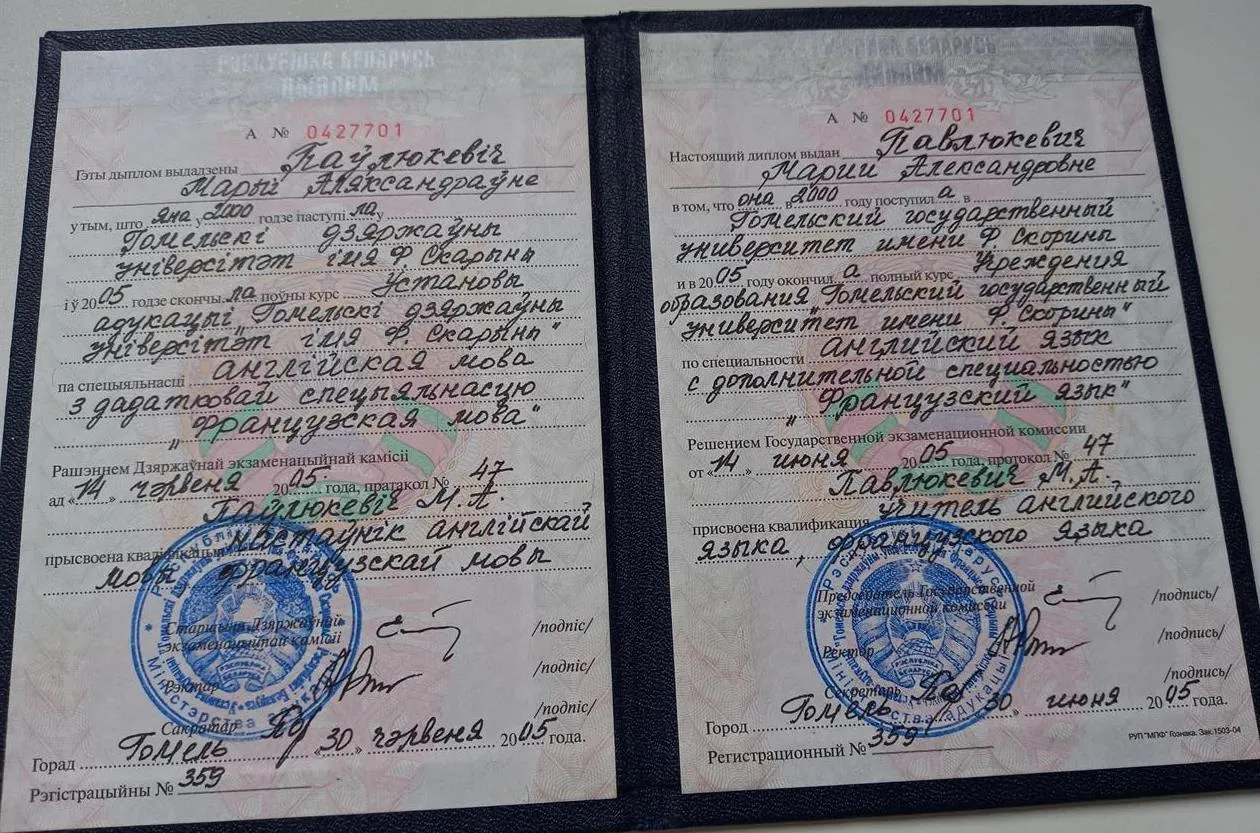 РЭСПУБЛІКА БЕЛАРУСЬ
ДЫПЛОМ
А № 0427701
Гэты дыплом выдадзены Паўлюкевіч
Марыі Аляксандраўне
у тым, што яна у 2000 годзе паступі ла у
Гомельскі дзяржаўны
універсітэт імя Ф. Скарыны
і ў 2005 годзе скончы ла поўны курс Установы
адукацыі "Гомельскі дзяржаўны
універсітэт імя Ф. Скарыны"
па спецыяльнасці англійская мова
з дадатковай спецыяльнасцю
"Французская мова"
Рашэннем Дзяржаўнай экзаменацыйнай камісіі
ад «14» чэрвеня 2005 года, пратакол № 47
Паўлюкевіч М.А.
прысвоена кваліфікацыя настаўнік англійскай
мовы французскай мовы
Старшыня Дзяржаўнай
экзаменацыйнай камісіі /подпіс/
Рэктар /подпіс/
Сакратар /подпіс/
Горад Гомель «30» чэрвеня 2005 года.
Рэгістрацыйны № 359
РЭСПУБЛІКА БЕЛАРУСЬ
ДЫПЛОМ
А № 0427701
Настоящий диплом выдан Павлюкевич
Марии Александровне
в том, что она в 2000 году поступил а в
Гомельский государственный
университет имени Ф. Скорины
и в 2005 году окончил а полный курс Учреждения
образования "Гомельский государственный
университет имени Ф. Скорины"
по специальности английский язык
с дополнительной специальностью
"Французский язык"
Решением Государственной экзаменационной комиссии
от «14» июня 2005 года, протокол № 47
Павлюкевич М.А.
присвоена квалификация учитель английского
языка, французского языка
Председатель Государственной
экзаменационной комиссии /подпись/
Ректор /подпись/
Секретарь /подпись/
Город Гомель «30» июня 2005 года.
Регистрационный № 359
РУП "МПФ" Гознака. Зак.1503-04